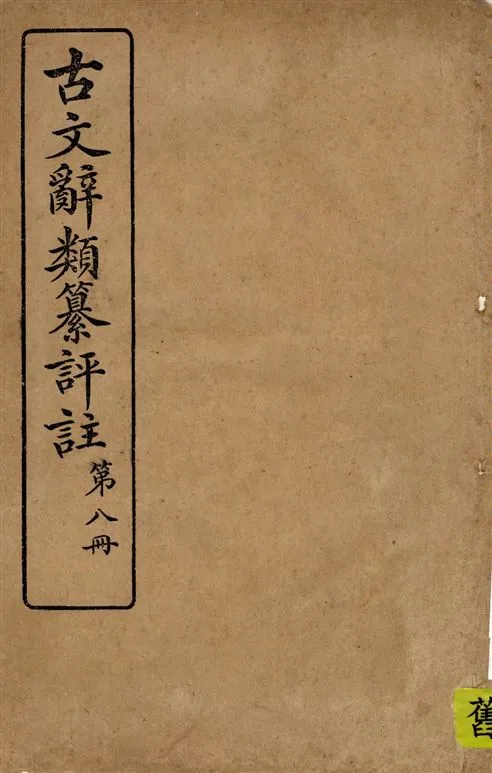 古文辭類纂評註
第八冊
舊